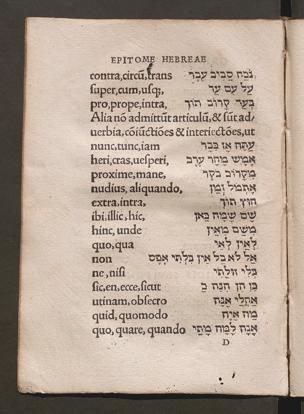 EPITOME HEBREAE
contra, circū, trans נֹכַח סָבִיב עֵבֶר
super, cum, usq; עַל עִם עַד
pro, prope, intra, בְּעַד קָרוֹב תּוֹךְ
Alia nō admittūt articulū, & sūt ad-
uerbia, cōiūctiōes & interiectōes, ut
nunc, tunc, iam עַתָּה אָז כְּבָר
heri, cras, uesperi, אֶמֶשׁ מָחָר עֶרֶב
proxime, mane, מִקָּרוֹב בֹּקֶר
nudius, aliquando, אֶתְמֹל זְמַן
extra, intra, חוּץ תּוֹךְ
ibi, illic, hic, שָׁם שָׁמָּה כָּאן
hinc, unde מִשָּׁם מֵאַיִן
quo, qua לְאַיִן לְאֵי
non אַל לֹא בַל אֵין בִּלְתִּי אֶפֶס
ne, nisi בְּלִי זוּלָתִי
sic, en, ecce, sicut כֵּן הֵן הִנֵּה כְּ
utinam, obsecro אַחֲלַי אָנָּה
quid, quomodo מָה אֵיךְ
quo, quare, quando אָנָה לָמָּה מָתַי
D